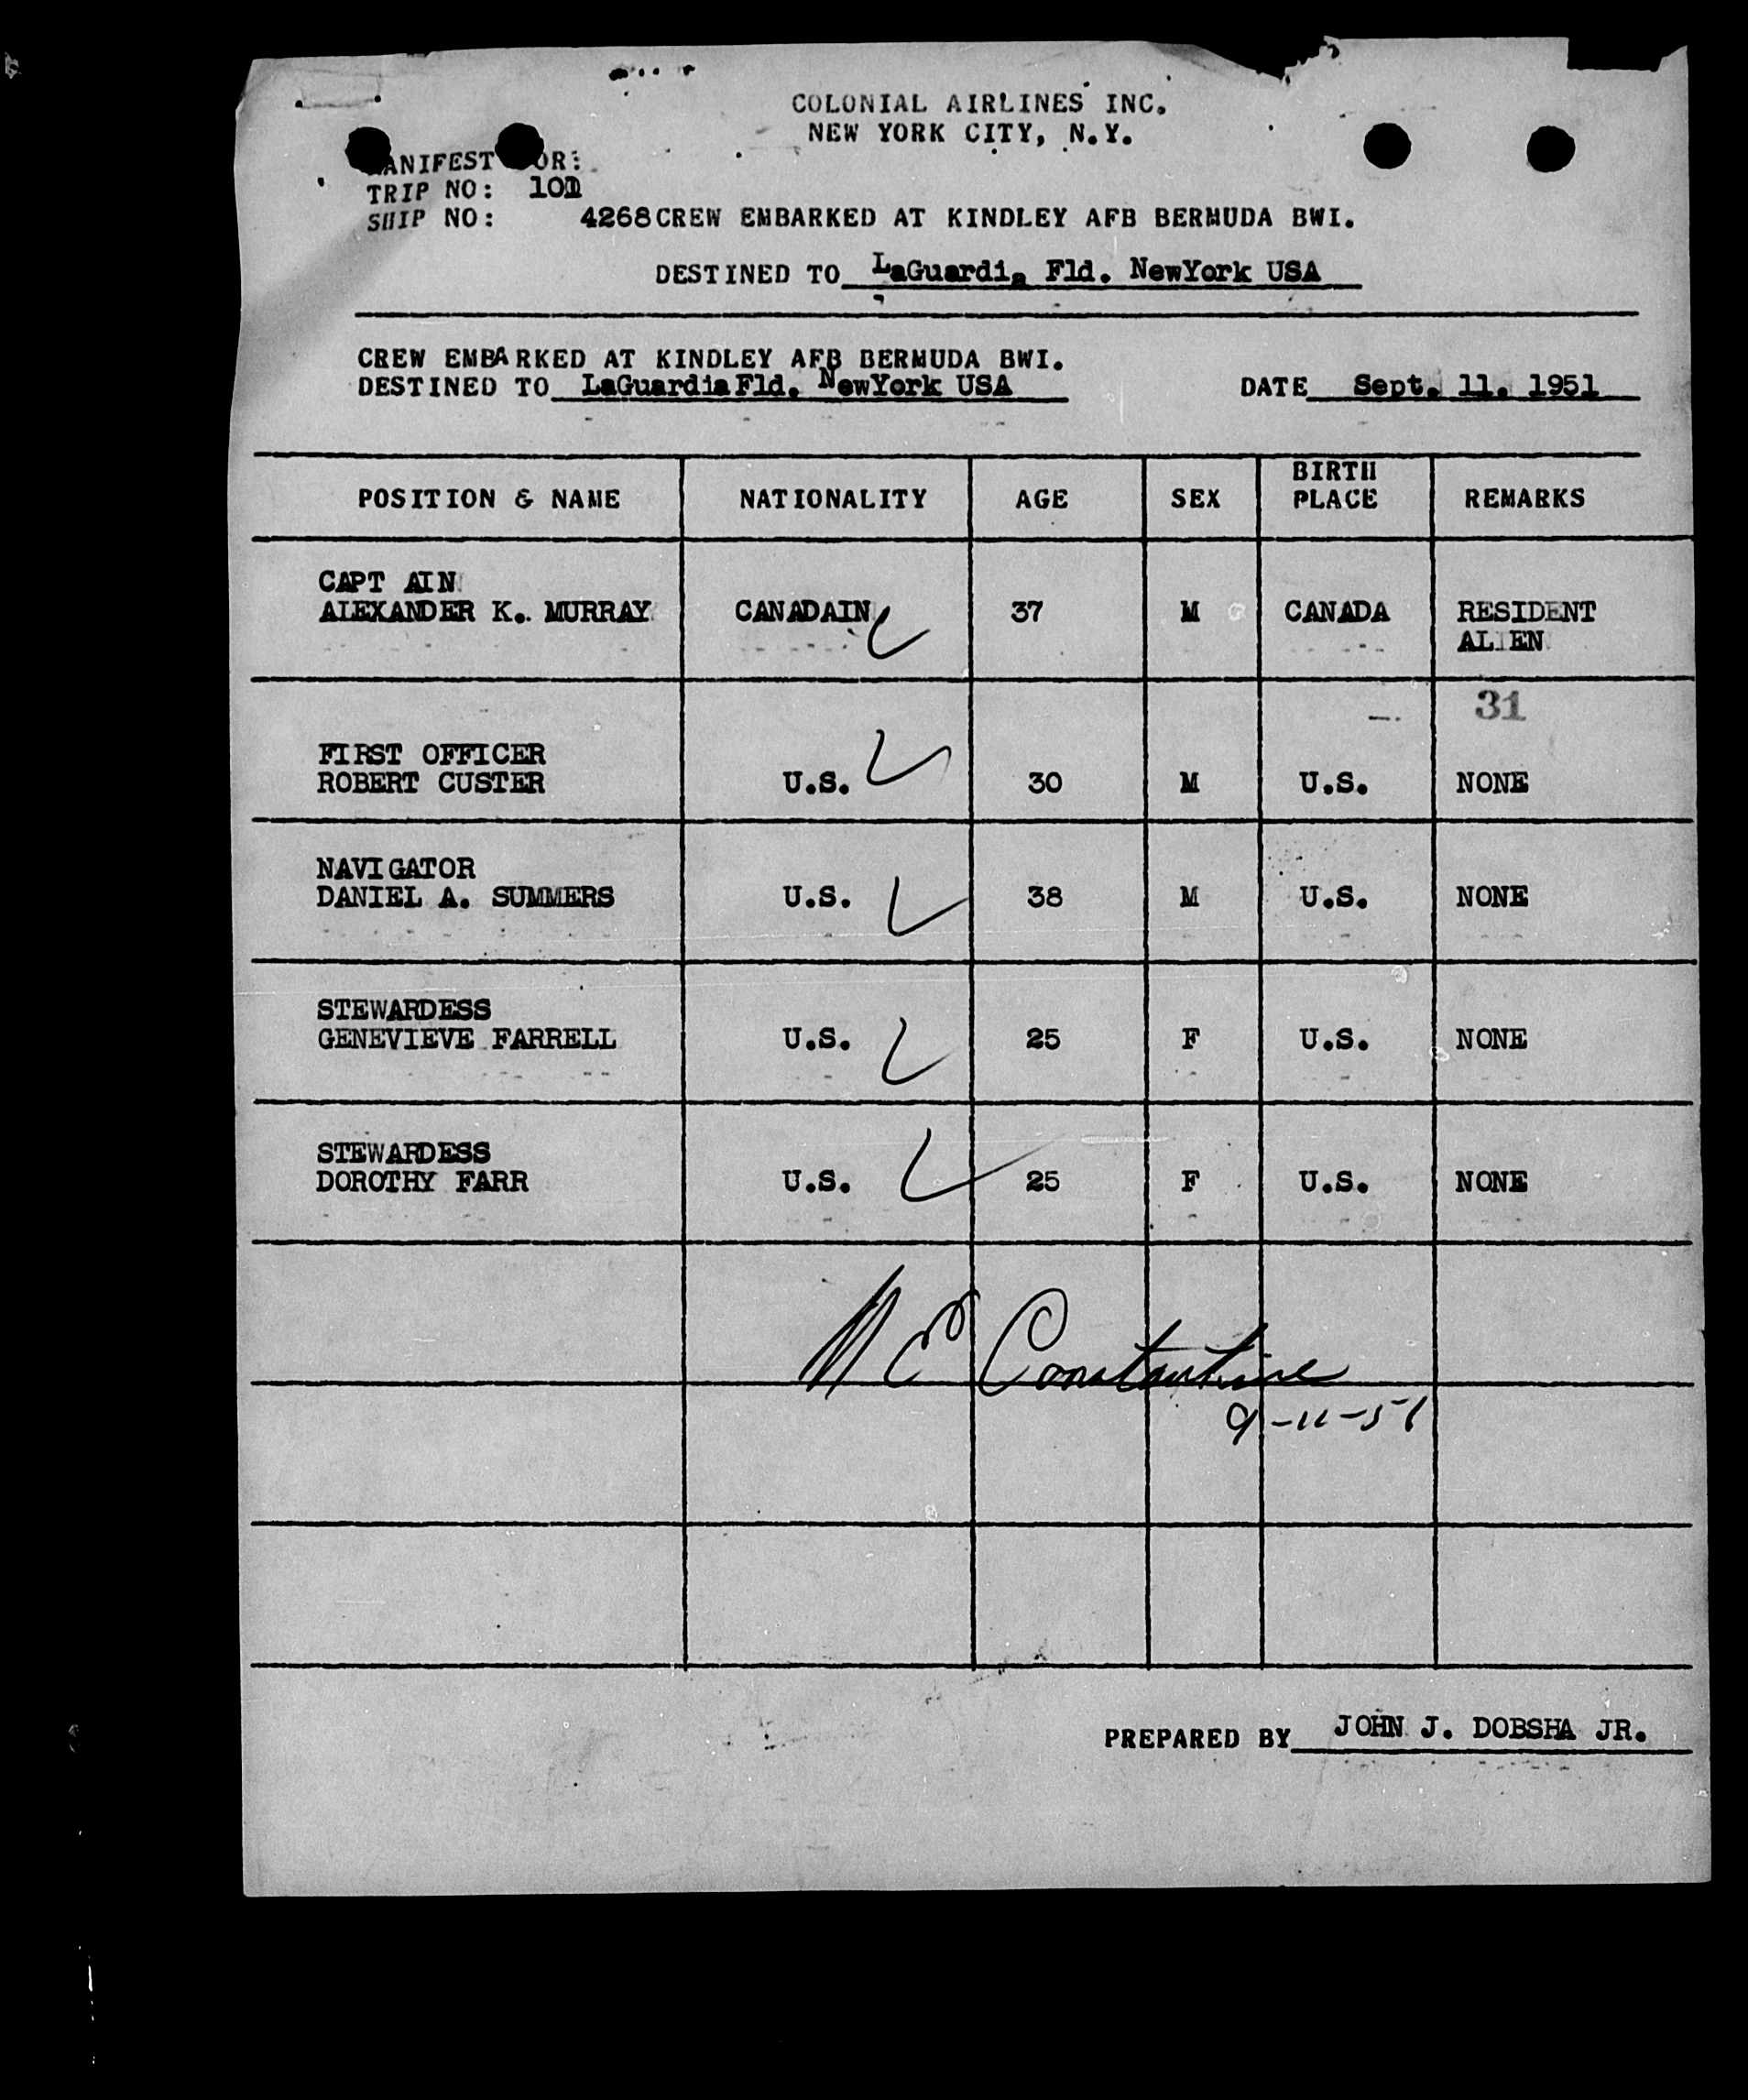 COLONIAL AIRLINES INC.
NEW YORK CITY, N.Y.
MANIFEST FOR:
TRIP NO: 101
SHIP NO: 4268 CREW EMBARKED AT KINDLEY AFB BERMUDA BWI.
DESTINED TO LaGuardia Fld. NewYork USA
CREW EMBARKED AT KINDLEY AFB BERMUDA BWI.
DESTINED TO LaGuardia Fld. NewYork USA DATE Sept. 11. 1951
POSITION & NAME NATIONALITY AGE SEX BIRTH PLACE REMARKS
CAPT AIN
ALEXANDER K. MURRAY CANADAIN 37 M CANADA RESIDENT
ALIEN
31
FIRST OFFICER
ROBERT CUSTER U.S. 30 M U.S. NONE
NAVIGATOR
DANIEL A. SUMMERS U.S. 38 M U.S. NONE
STEWARDESS
GENEVIEVE FARRELL U.S. 25 F U.S. NONE
STEWARDESS
DOROTHY FARR U.S. 25 F U.S. NONE
N E Constantine
9-11-51
PREPARED BY JOHN J. DOBSHA JR.